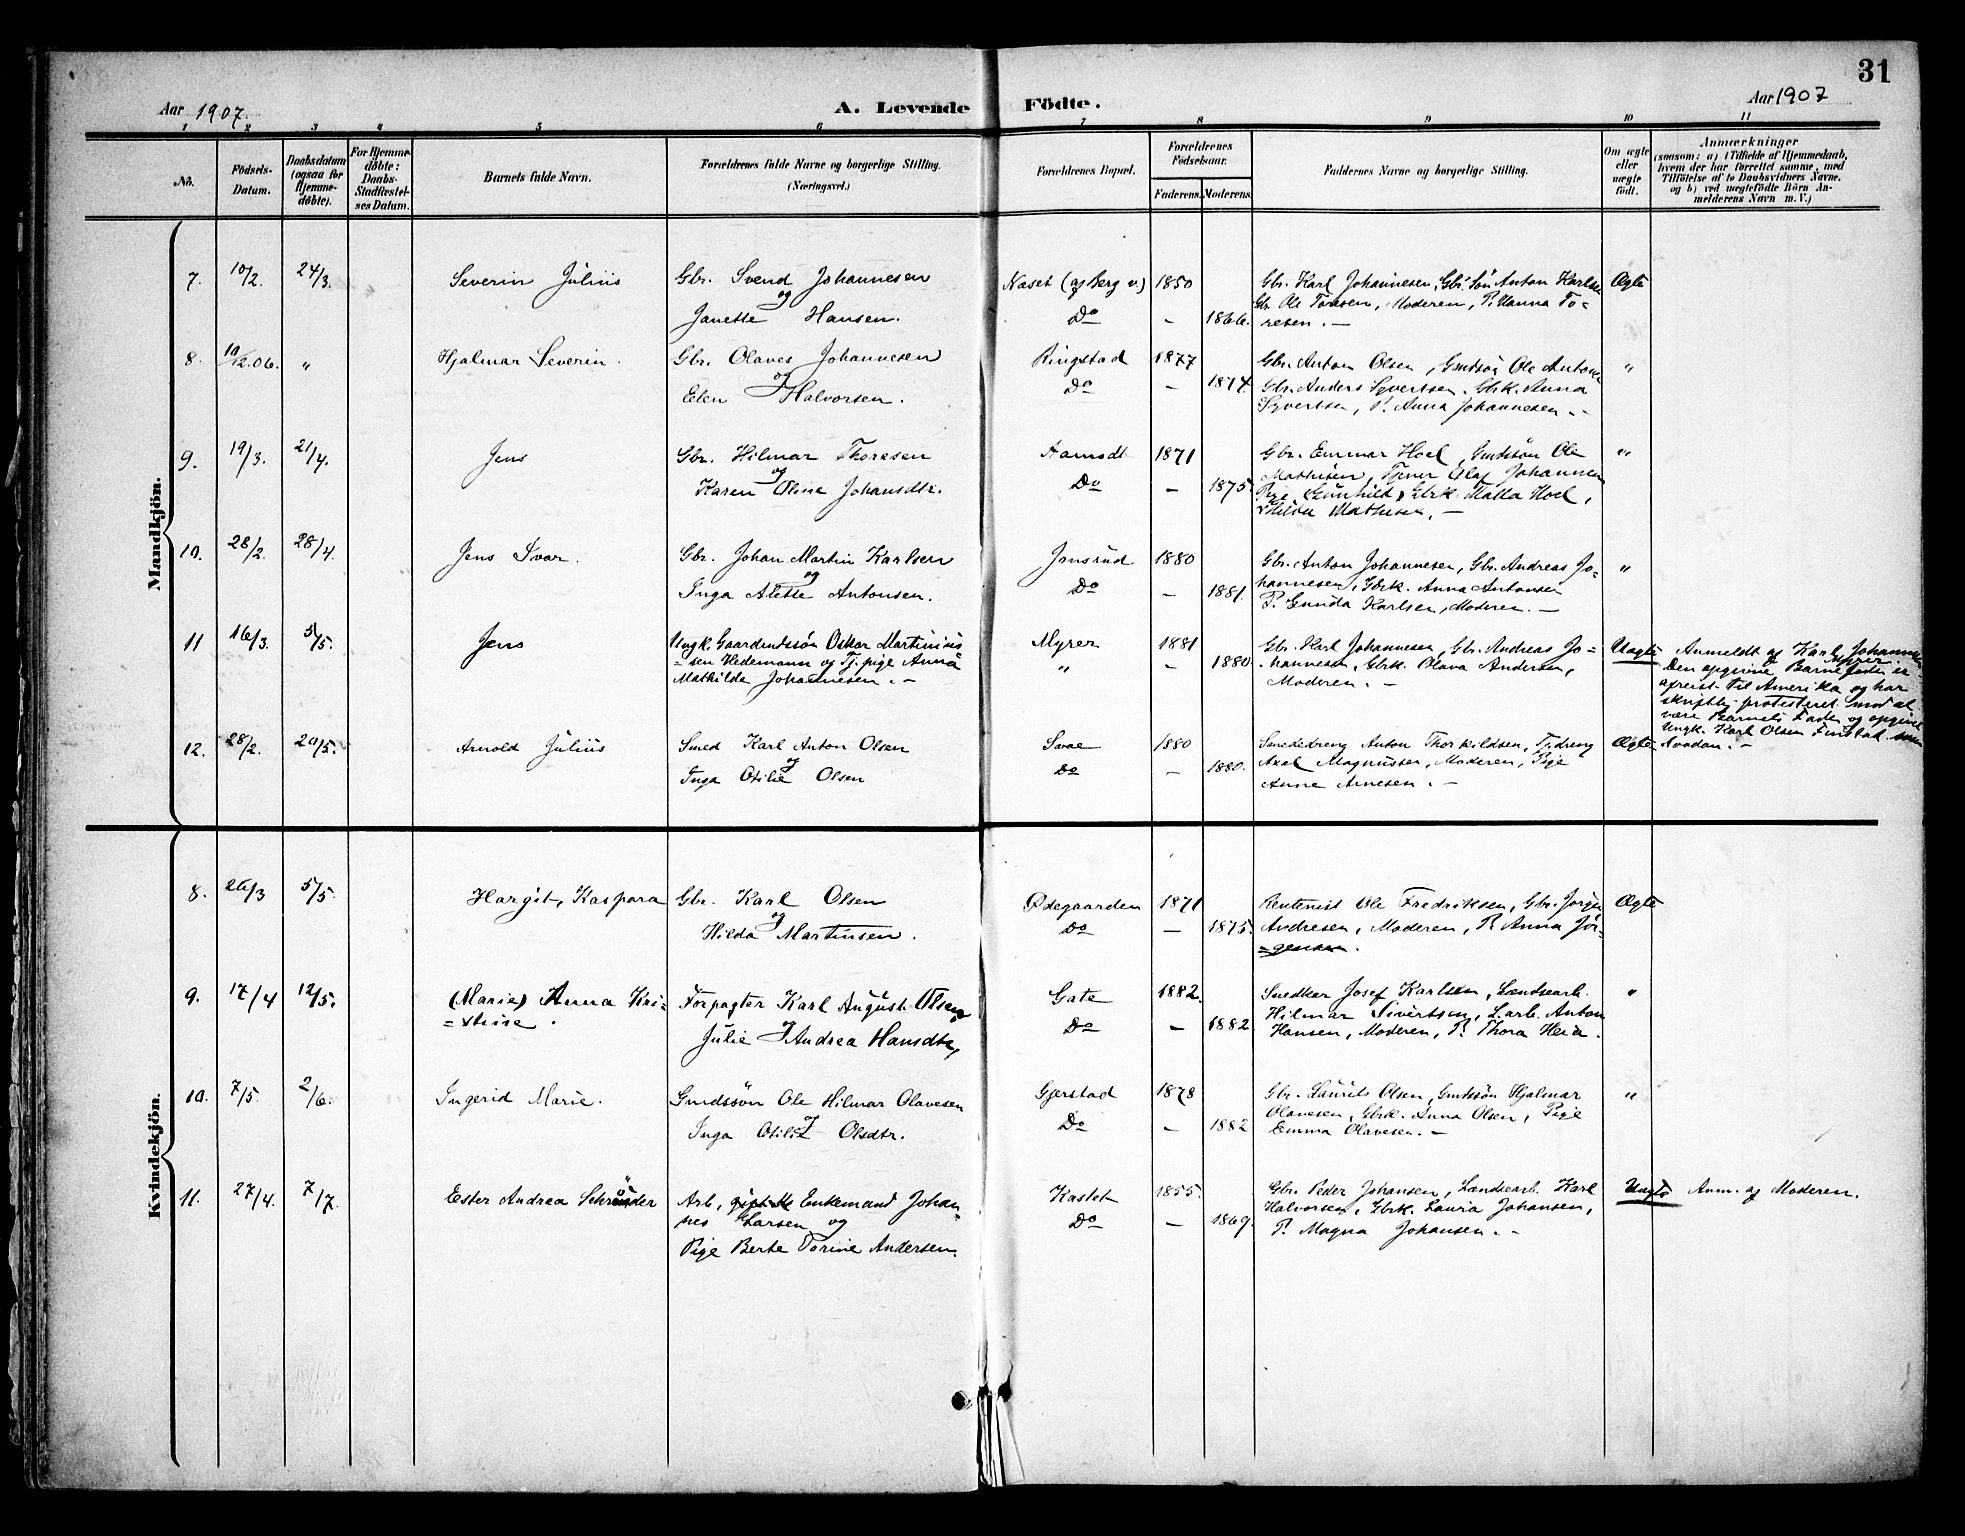 31
Aar 1907.
A. Levende Födte.
Aar 1907
1 2 3 4 5 6 7 8 9 10 11
No.
Födsels-Datum.
Daabsdatum (ogsaa for Hjemme-døbte).
For Hjemme-döbte: Daabs-Stadfæstel-ses Datum.
Barnets fulde Navn.
Forældrenes fulde Navne og borgerlige Stilling. (Næringsvei.)
Forældrenes Bopæl.
Forældrenes Födselsaar.
Faderens. Moderens.
Faddernes Navne og borgerlige Stilling.
Om ægte eller uægte födt.
Anmærkninger
(saasom: a) i Tilfælde af Hjemmedaab,
hvem der har forrettet samme, med
Tilföielse af to Daabsvidners Navne.
og b) ved uægtefödte Börn An-
melderens Navn m. V.)
Mandkjön.
7. 10/2. 24/3. Severin Julius
Gbr. Svend Johannesen
og
Janette Hansen.
Naset (af Berg v.) 1850
Do — 1866.
Gbr. Karl Johannesen, Gbr. Søn Anton Karlsen
Gbr. Ole Toresen, Moderen, P. Hanna To-
resen. —
Ægte
8. 10/12.06. " Hjalmar Severin.
Gbr. Olaves Johannesen
og
Elen Halvorsen.
Ringstad 1877
Do — 1874.
Gbr. Anton Olsen, Gmdsøn Ole Antons
Gbr. Anders Syvertsen. Gbrk. Anna
Syvertsen, P. Anna Johannesen. —
"
9. 19/3. 21/4. Jens
Gbr. Hilmar Thoresen
og
Karen Oline Johansdtr.
1871
Do — 1875.
Gbr. Emmar Hoel, Gmdsön Ole
Mathisen, Tjener Olaf Johannesen
Pige Gunhild, Gbrk. Matla Hoel,
Hilda Mathisen. —
"
10. 28/2. 28/4. Jens Ivar.
Gbr. Johan Martin Karlsen
og
Inga Alette Antonsen.
Jonsrud 1880
Do — 1881.
Gbr. Anton Johannesen, Gbr. Andreas Jo-
hannesen, Gbrk. Anna Antonsen
P. Gunda Karlsen, Moderen. —
"
11 16/3. 5/5. Jens
Ungk. Gaardmdssøn Oskar Martinius-
=sen Hedemann og Tj. pige Anna
Mathilde Johannesen. —
Myrer 1881
" — 1880.
Gbr. Karl Johannesen, Gbr. Andreas Jo-
hannesen, Gbrk. Olava Andersen,
Moderen. —
Uægte
Anmeldt af Karl Johannesen
Myrer.
Den opgivne Barnefader er
afreist til Amerika og har
skriftlig protesteret mod at
være Barnets Fader og opgivet
Ungk. Karl Olsen Finstad som
saadan. —
12. 28/2. 20/5. Arnold Julius
Smed Karl Anton Olsen
og
Inga Otilie Olsen
Svae 1880
Do — 1880.
Smededreng Anton Thorkildsen, Tj. dreng
Axel Magnussen, Moderen, Pige
Anne Arnesen. —
Ægte
Kvindekjön.
8. 26/3 5/5. Hargit, Kaspara
Gbr. Karl Olsen
og
Hilda Martinsen.
Ødegaarden 1871
Do — 1875.
Rentenist Ole Fredriksen, Gbr. Jørgen
Andresen, Moderen, P. Anna Jör-
=gensen.
Ægte
9. 17/4 12/5. (Marie) Anna Kri-
=stine.
Forpagter Karl August Olsen
og
Julie Andrea Hansdtr,
Gate 1882.
Do — 1882.
Snedker Josef Karlsen, Landsearb.
Hilmar Sivertsen, L.arb. Anton
Hansen, Moderen, P. Thora Heia.
"
10. 7/5. 2/6. Ingerid Marie.
Gmdssön Ole Hilmar Olavesen
og
Inga Otilie Olsdtr.
Gjerstad 1878
Do — 1882
Gbr. Laurits Olsen, Gmdssön Hjalmar
Olavesen, Gbrk. Anna Olsen, Pige
Emma Olavesen. —
"
11. 27/4. 7/7. Ester Andrea Schrøder
Arb, Enkemand Johan-
nes Larsen og
Pige Berte Torine Andersen.
Kastet 1855.
Do — 1869.
Gbr. Peder Johansen, Landsearb. Karl
Halvorsen, Gbrk. Laura Johansen,
P. Magna Johansen. —
Uægte
Anm. af Moderen.